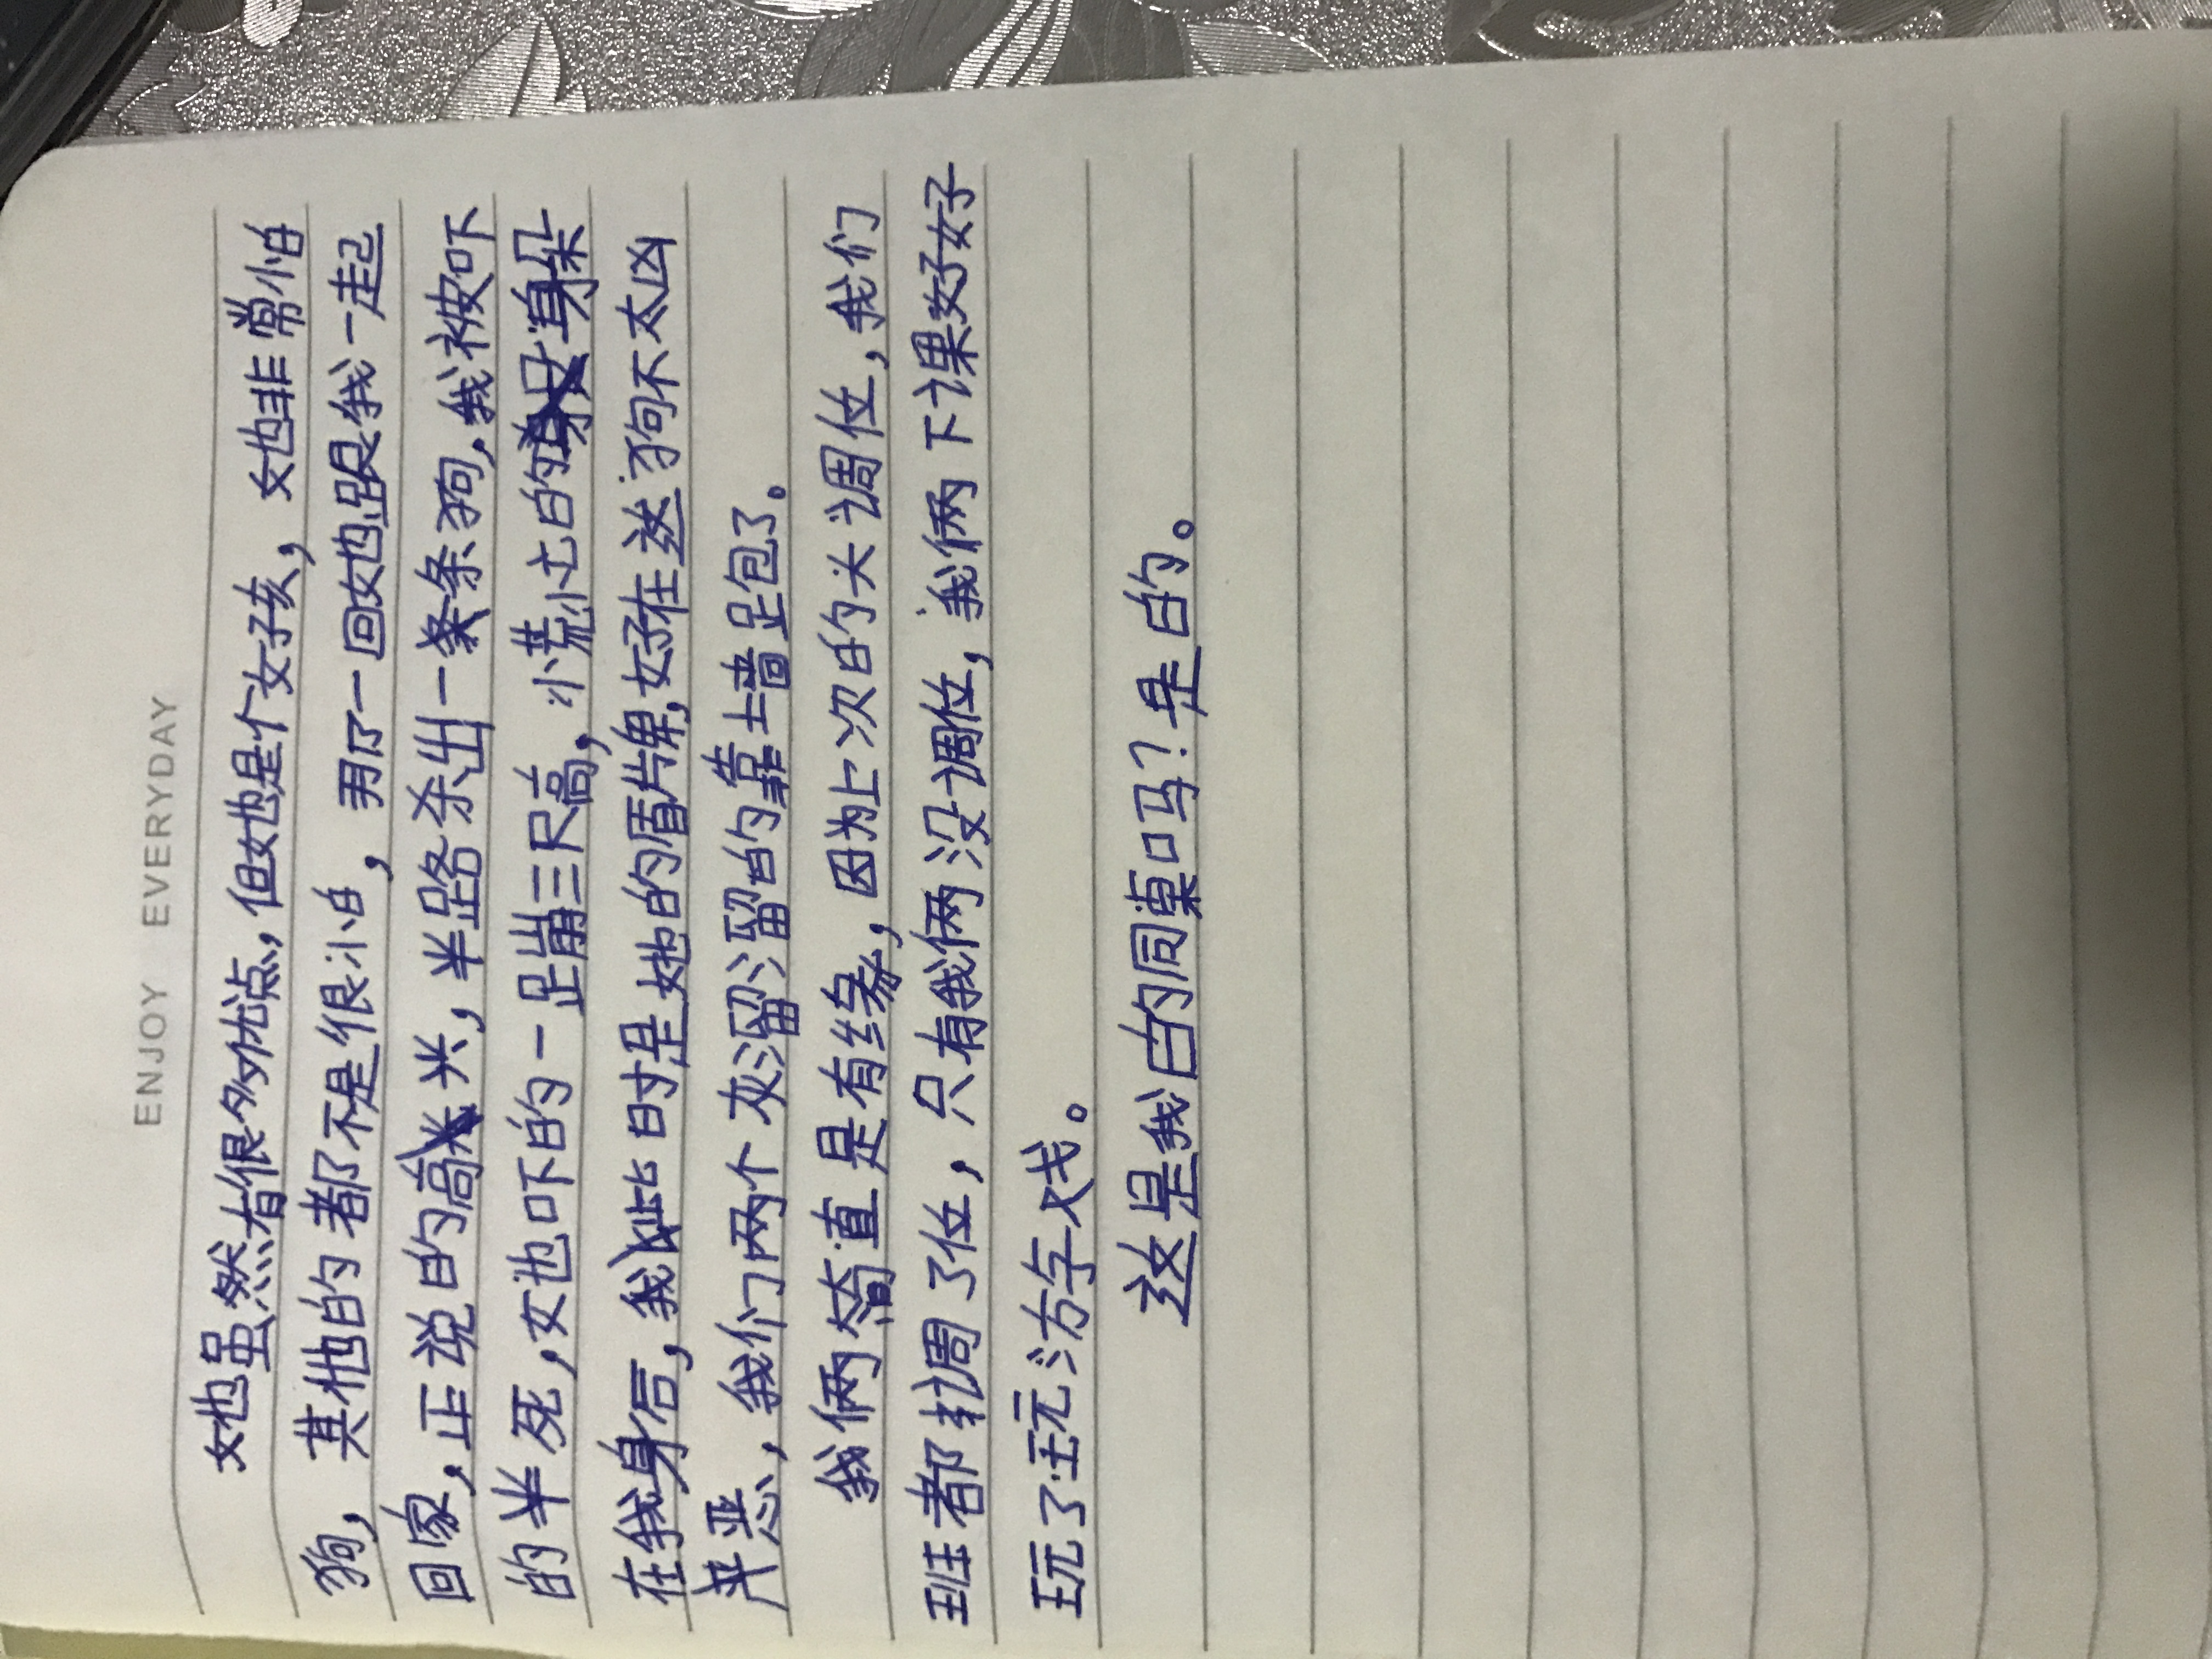 ENJOY EVERYDAY
她虽然有很多优点,但她是个女孩,她非常怕
狗,其他的都不是很怕,那一回她跟我一起
回家,正说的高兴,半路杀出一条狗,我被吓
的半死,她吓的一蹦三尺高,慌忙的躲
在我身后,我此时是她的盾牌,好在这狗不太凶
严恶,我们两个灰溜溜的靠墙跑了。
我俩简直是有缘,因为上次的头调位,我们
班都调了位,只有我俩没调位,我俩下课好好
玩了玩方字戏。
这是我的同桌吗?是的。